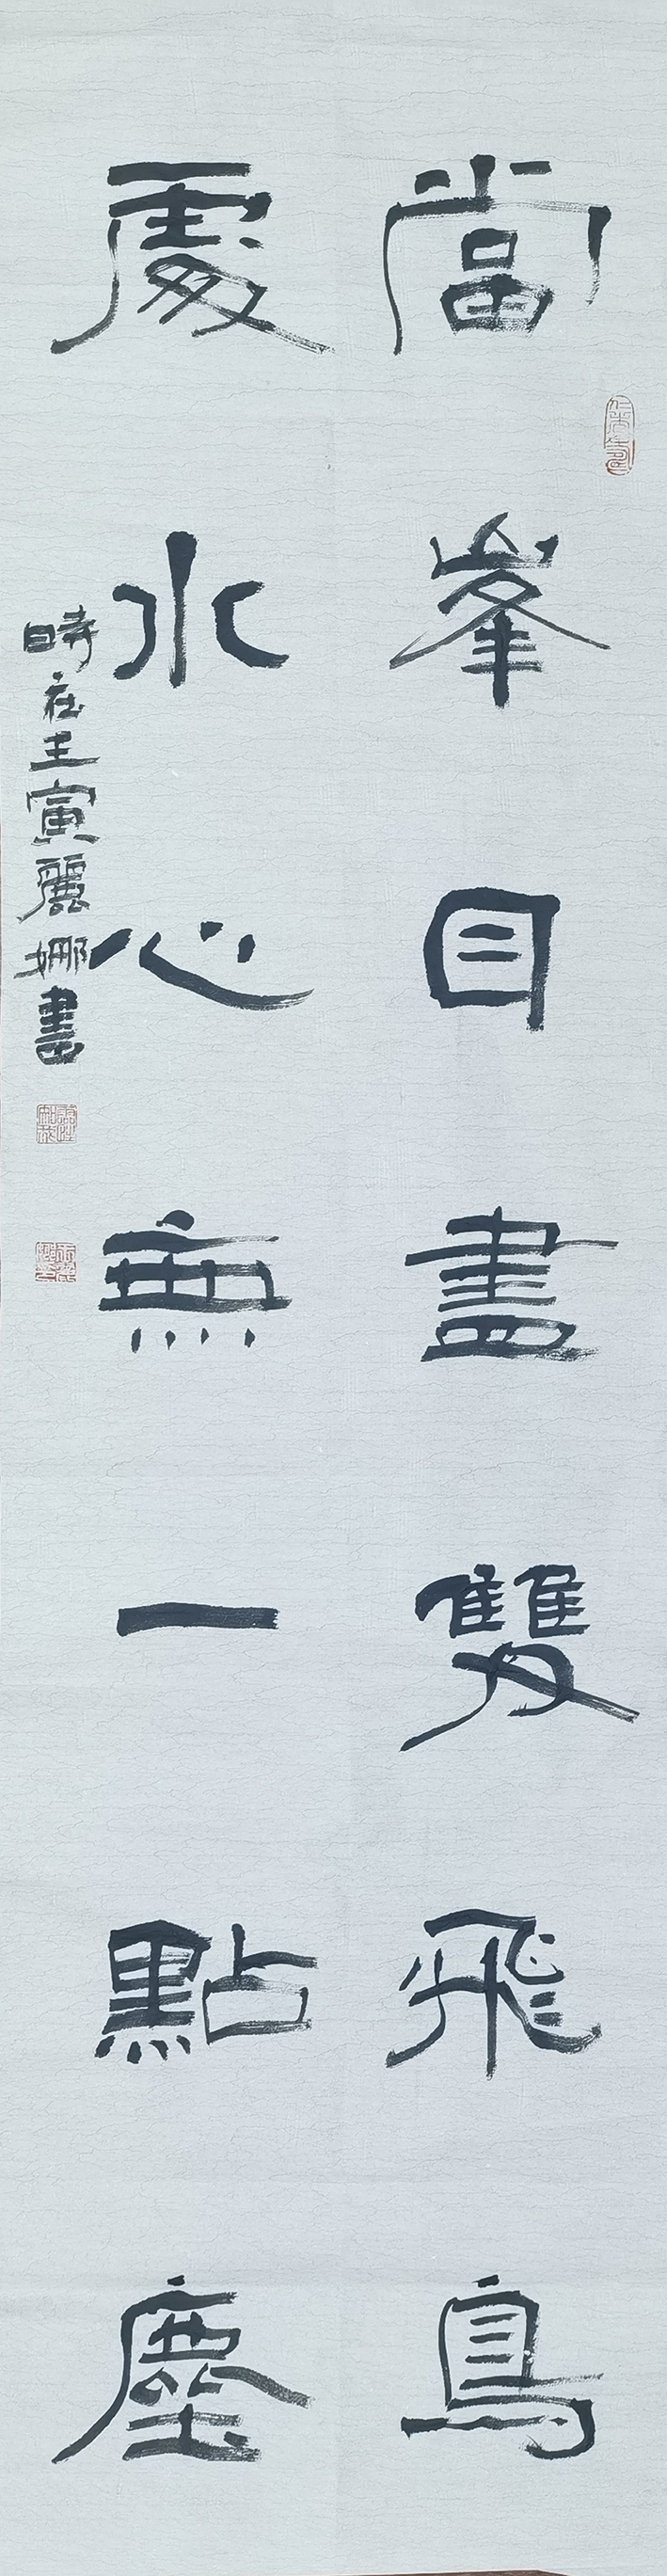 當峯目盡雙飛鳥
處水心無一點塵
時在壬寅麗娜書